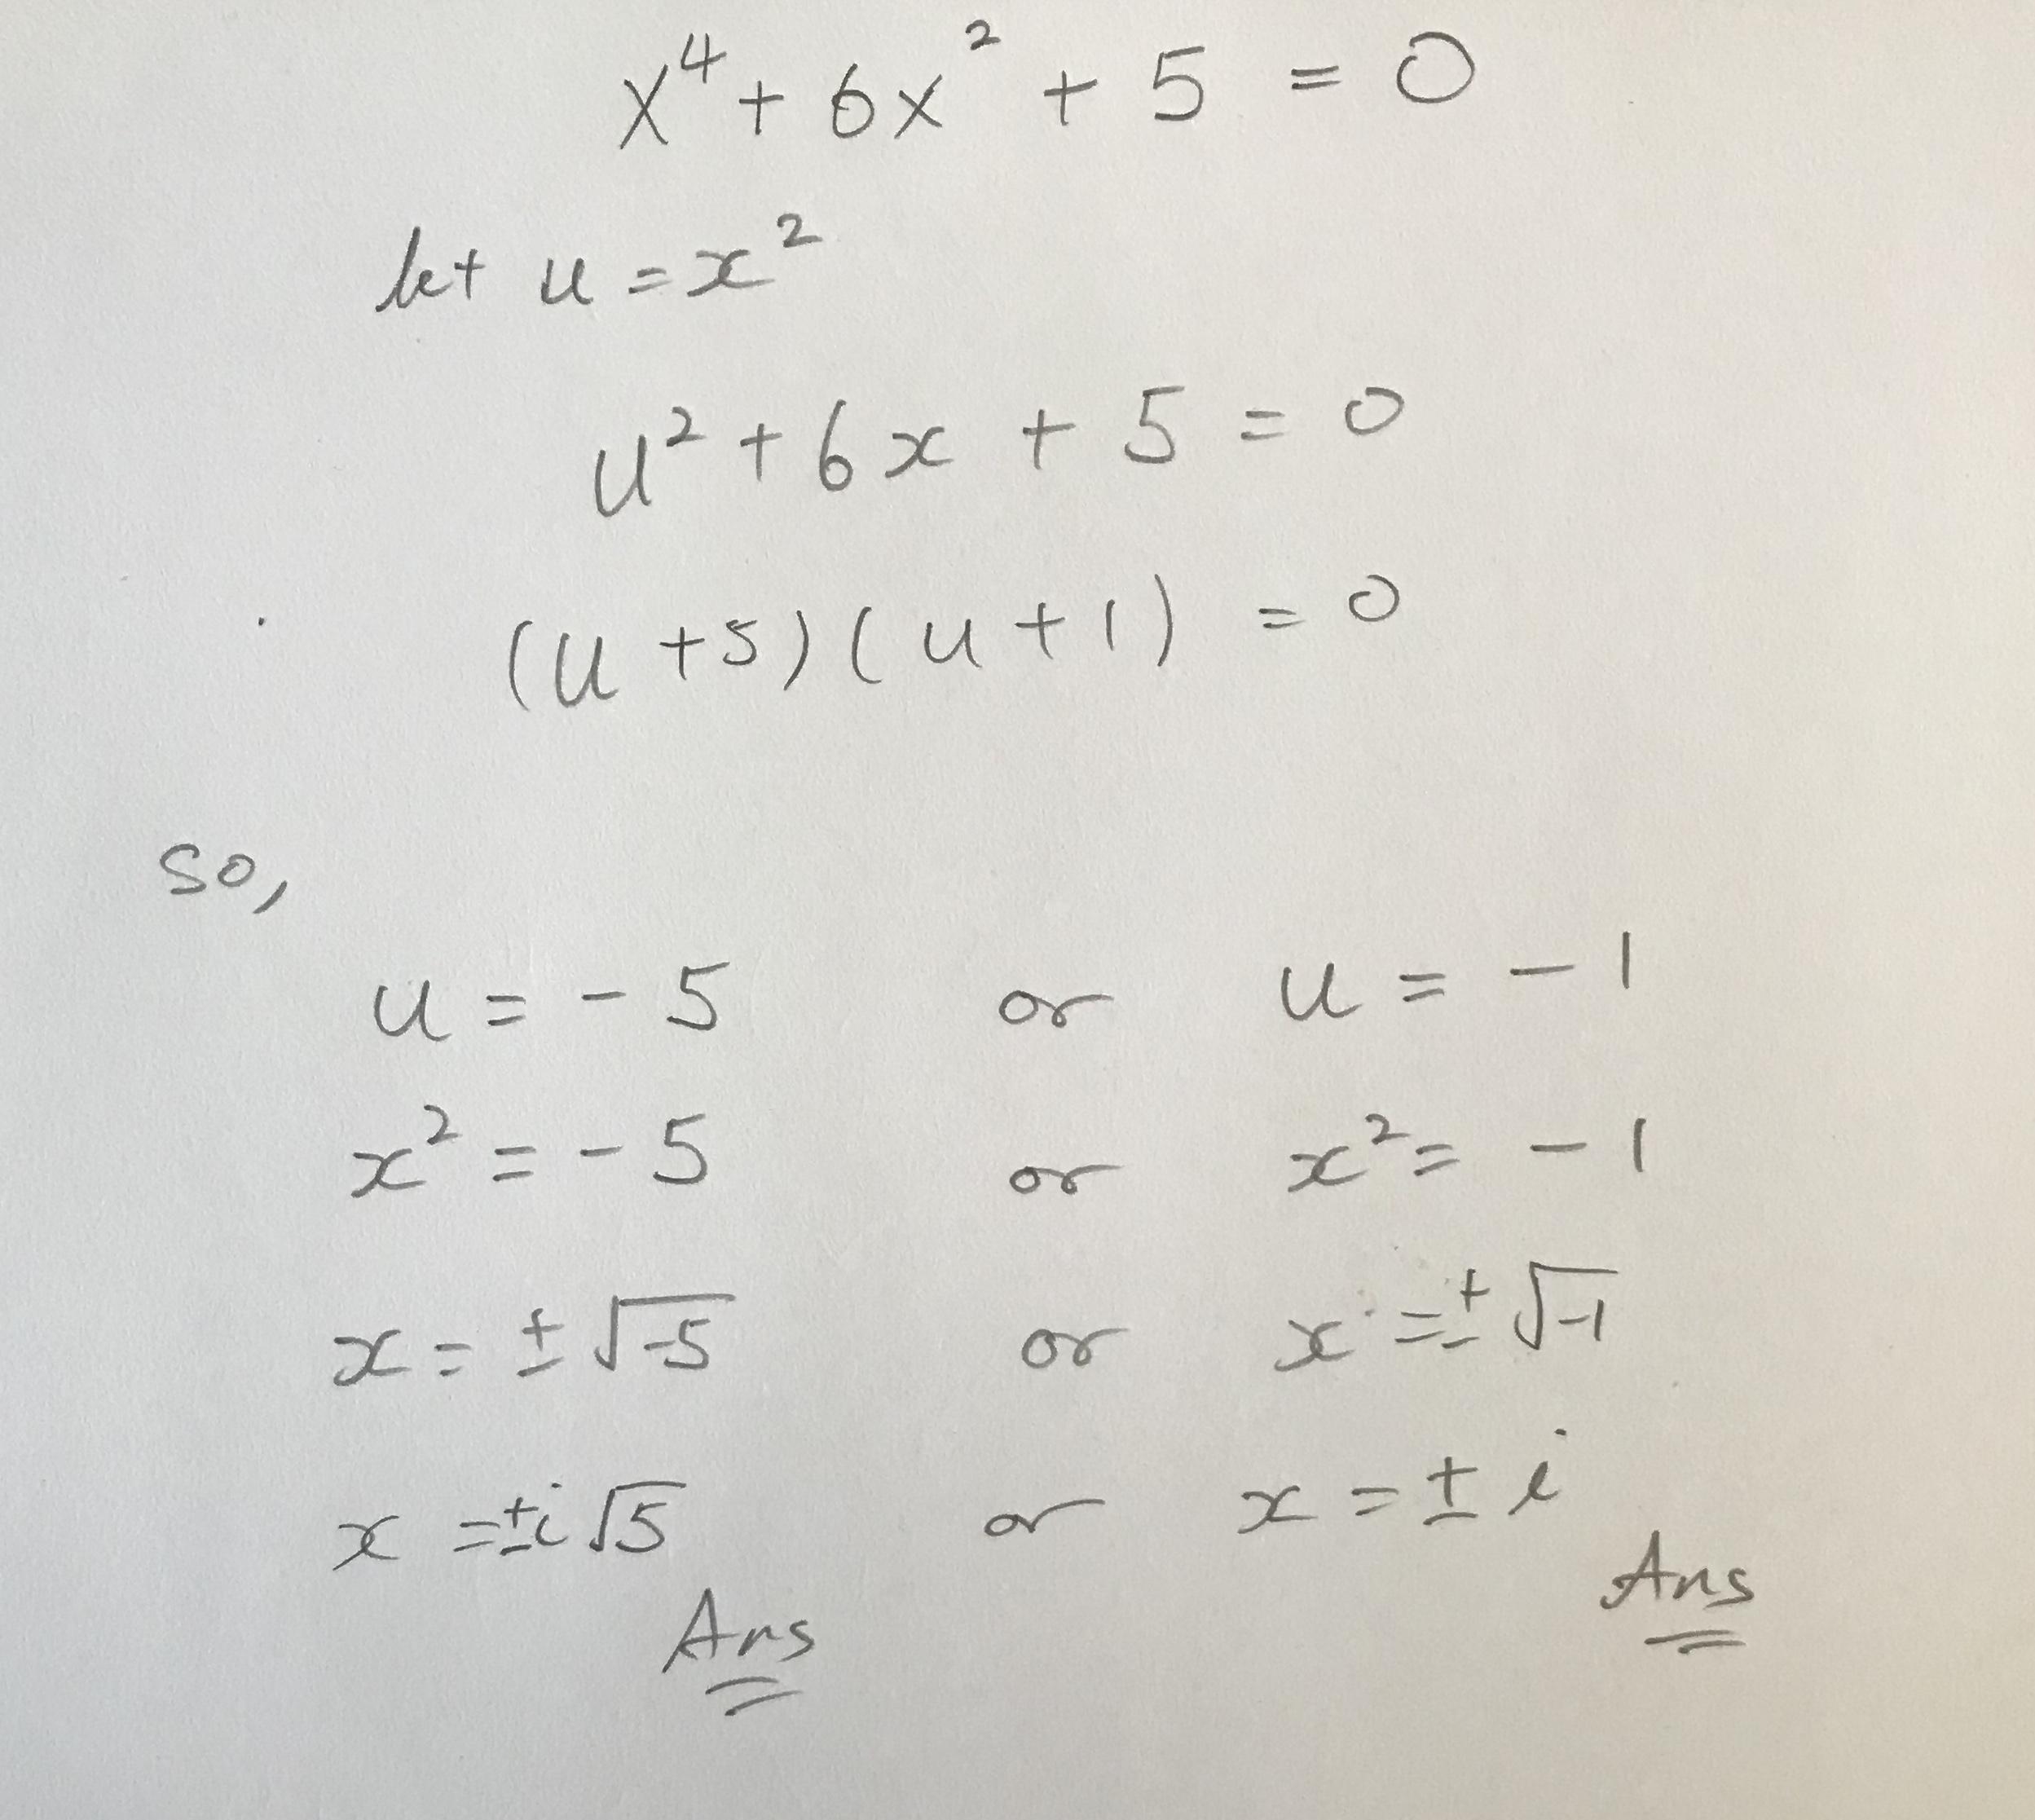 x⁴ + 6x² + 5 = 0
let u = x²
u² + 6x + 5 = 0
(u + 5)(u + 1) = 0
so,
u = - 5 or u = - 1
x² = - 5 or x² = - 1
x = ± √-5 or x = ± √-1
x = ± i √5 or x = ± i
Ans Ans